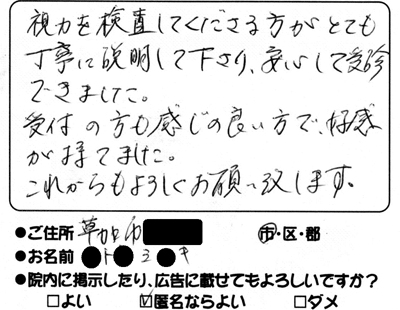 視力を検査してくださる方がとても
丁寧に説明して下さり、安心して受診
できました。
受付の方も感じの良い方で、好感
が持てました。
これからもよろしくお願い致します。
●ご住所 草加市 市・区・郡
●お名前 ●ト●ミ●キ
●院内に掲示したり、広告に載せてもよろしいですか？
□よい ☑匿名ならよい □ダメ